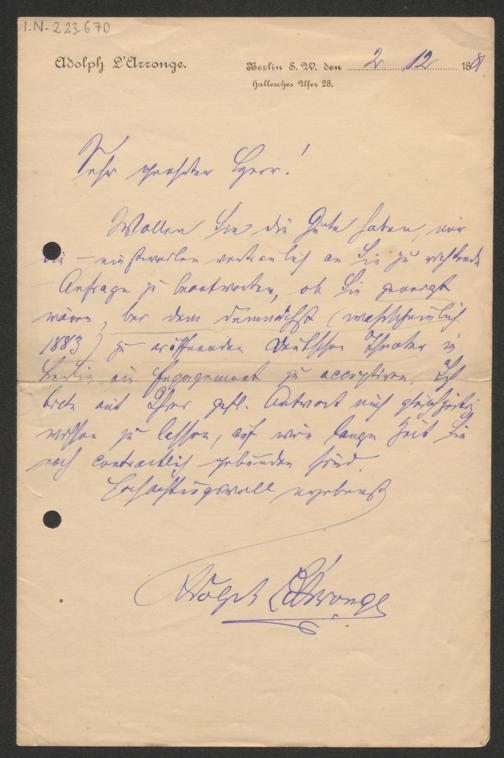 I.N. 223.670
Adolph L'Arronge.
Berlin S. W. den 2 12 188
Hallesches Ufer 28.
Sehr geehrter Herr!
Wollen Sie die Güte haben, mir
die – einstweilen vertraulich an Sie zu richtende
Anfrage zu beantworten, ob Sie geneigt
wären, bei dem demnächst (wahrscheinlich
1883) zu eröffnenden Deutschen Theater in
Berlin ein Engagement zu acceptiren. Ich
bitte mit Ihrer gefl. Antwort mich gleichzeitig
wissen zu lassen, auf wie lange Zeit Sie
noch contractlich gebunden sind.
Hochachtungsvoll ergebenst
Adolph L'Arronge